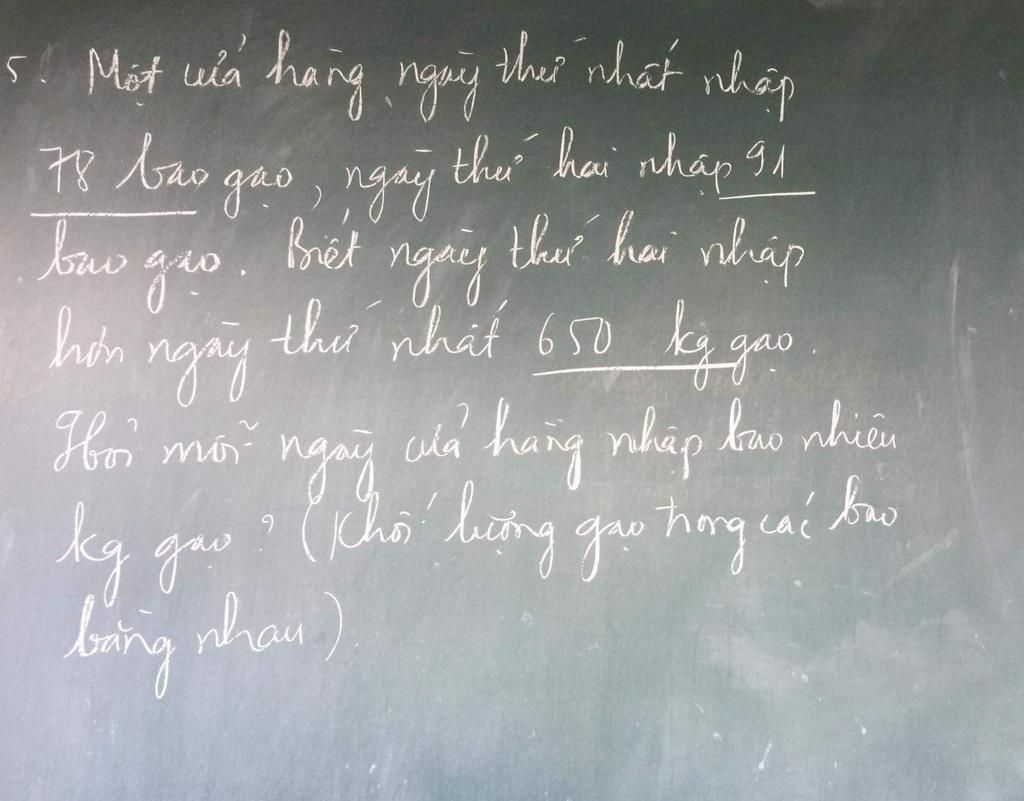 5. Một cửa hàng, ngày thứ nhất nhập
78 bao gạo, ngày thứ hai nhập 91
bao gạo. Biết ngày thứ hai nhập
hơn ngày thứ nhất 650 kg gạo.
Hỏi mỗi ngày cửa hàng nhập bao nhiêu
kg gạo? (Khối lượng gạo trong các bao
bằng nhau).